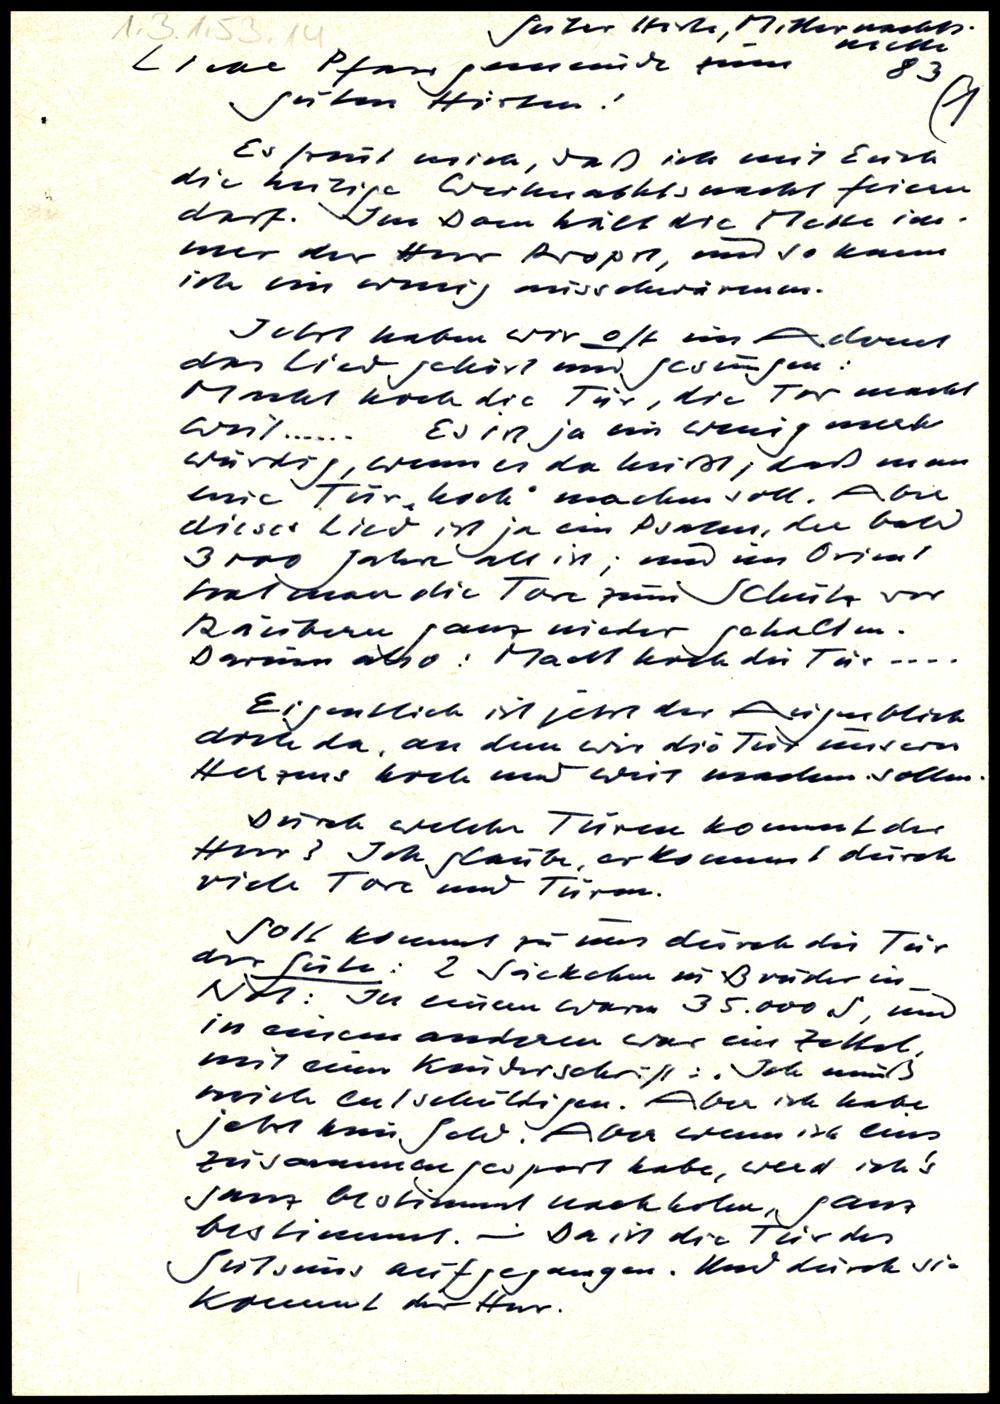 1.3.1.53.14
Guter Hirte, Mitternachts-
mette
83
(1
Liebe Pfarrgemeinde zum
guten Hirten!
Es freut mich, daß ich mit Euch
die heilige Weihnachtsnacht feiern
darf. Im Dom hält die Mette im-
mer der Herr Propst, und so kann
ich ein wenig ausschwärmen.
Jetzt haben wir oft im Advent
das Lied gehört und gesungen:
Macht hoch die Tür, die Tor macht
weit...... Es ist ja ein wenig merk
würdig, wenn es da heißt, daß man
eine Tür „hoch" machen soll. Aber
dieses Lied ist ja ein Psalm, der bald
3000 Jahre alt ist; und im Orient
hat man die Tore zum Schutz vor
Räubern ganz nieder gehalten.
Darum also: Macht hoch die Tür ----
Eigentlich ist jetzt der Augenblick
doch da, an dem wir die Tür unseres
Herzens hoch und weit machen sollen.
Durch welche Türen kommt der
Herr? Ich glaube, er kommt durch
viele Tore und Türen.
Gott kommt zu uns durch die Tür
der Güte: 2 Säckchen Bruder in
Not: In einem waren 35.000 S, und
in einem anderen war ein Zettel,
mit einer Kinderschrift: Ich muß
mich entschuldigen. Aber ich habe
jetzt kein Geld. Aber wenn ich eins
zusammengespart habe, werd ich's
ganz bestimmt nachholen, ganz
bestimmt. — Da ist die Tür des
Gutseins aufgegangen. Und durch sie
kommt der Herr.